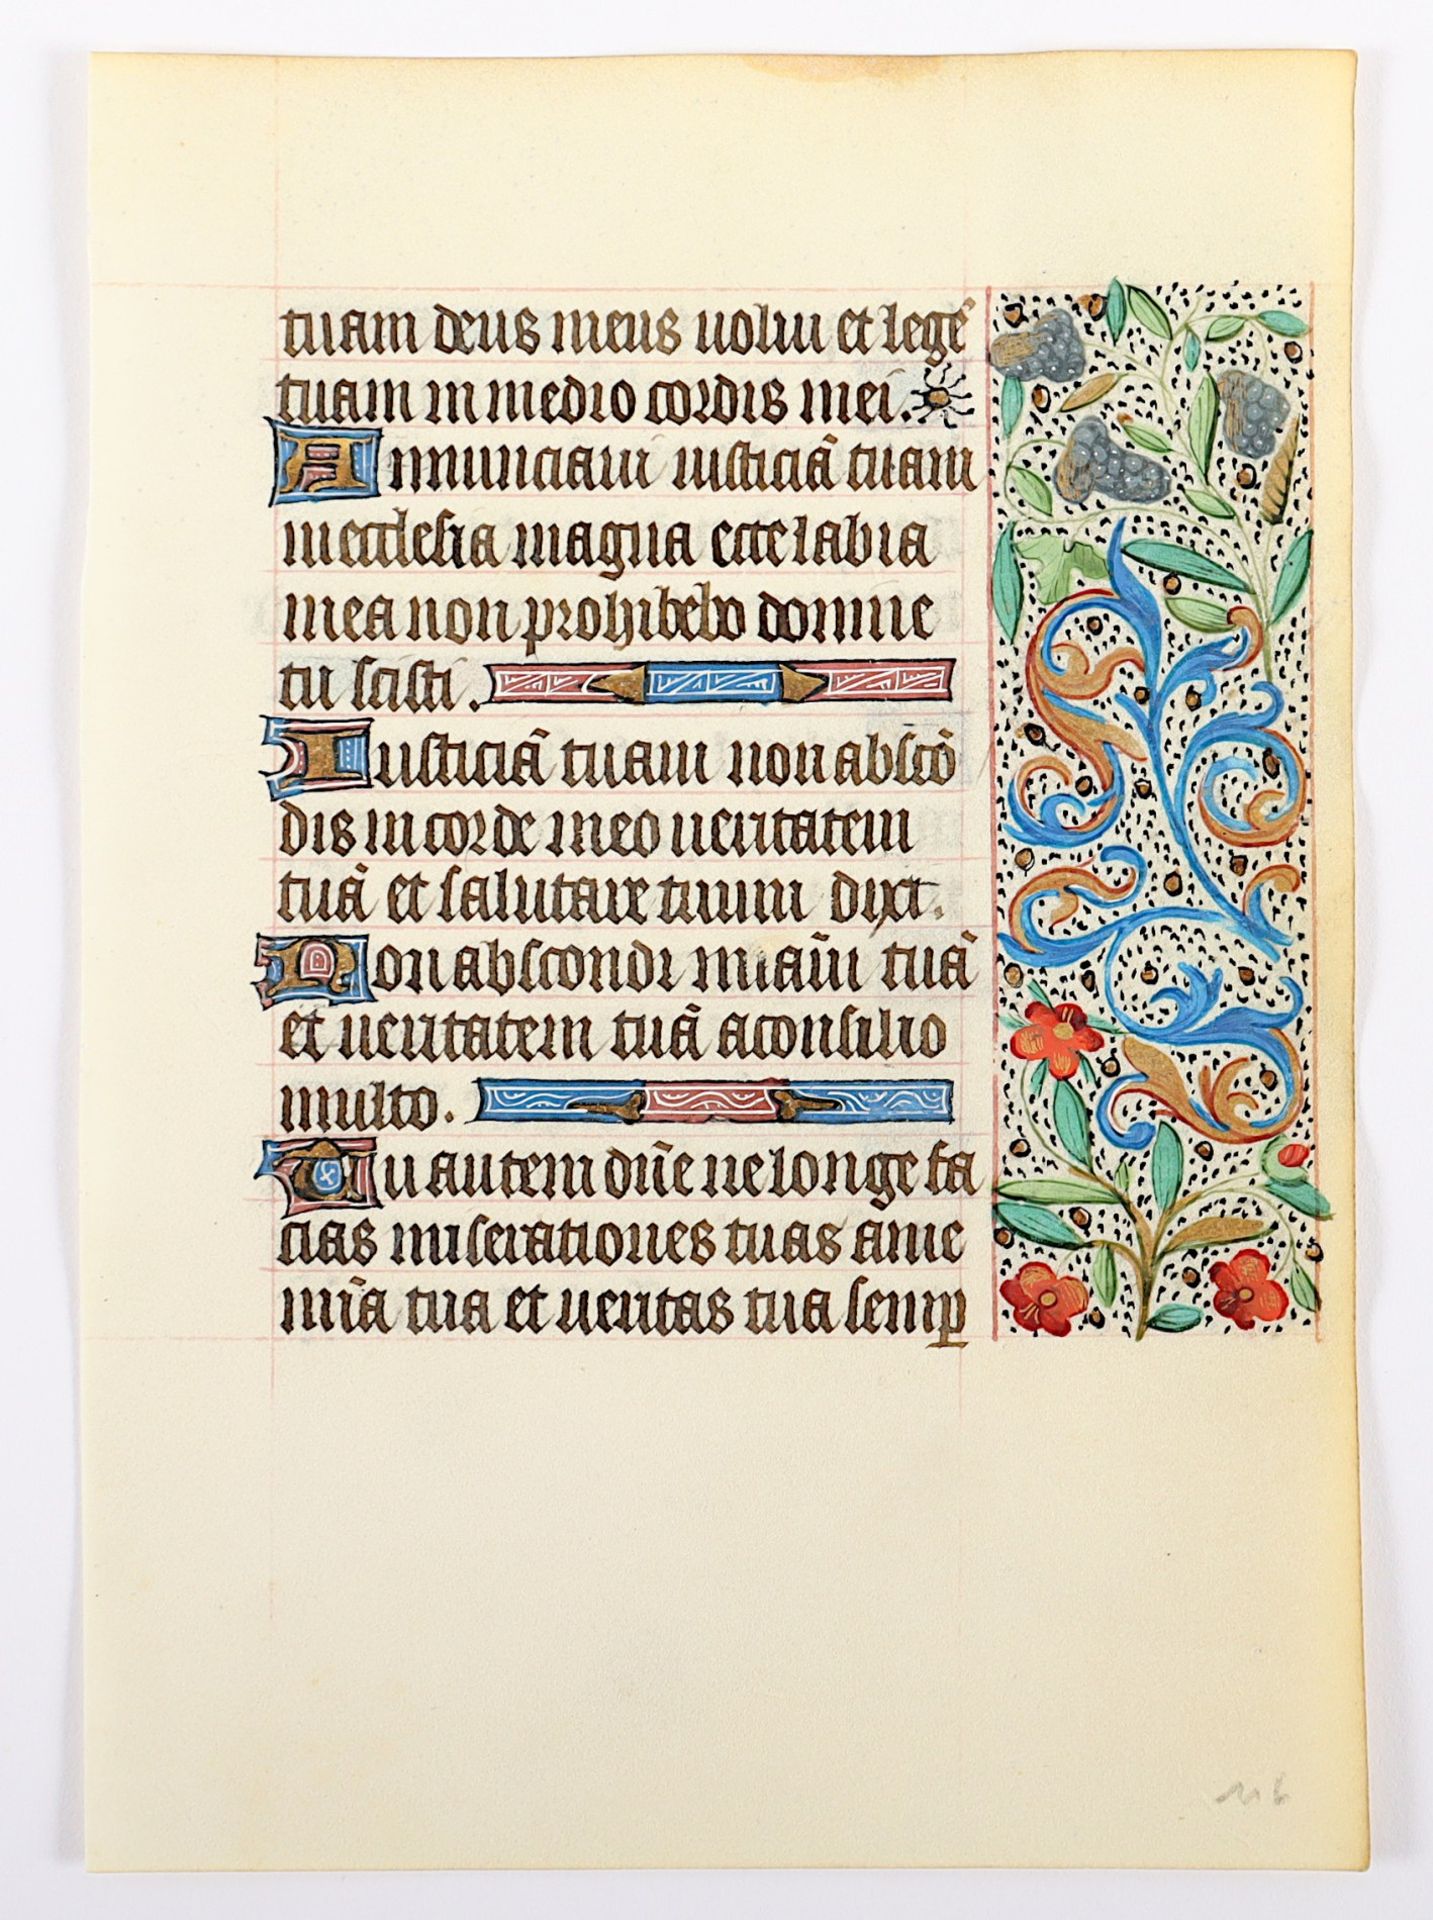 tuam deus meus uolui et legē
tuam in medio cordis mei.
Annunciaui iusticiā tuam
in ecclesia magna ecce labia
mea non prohibebo domine
tu scisti.
Iusticiā tuam non abscō
dis in corde meo ueritatem
tuā et salutare tuum dixi.
Non abscondi miām tuā
et ueritatem tuā a consilio
multo.
Tu autem dn̄e ne longe fa
cias miserationes tuas a me
mīa tua et ueritas tua semꝑ